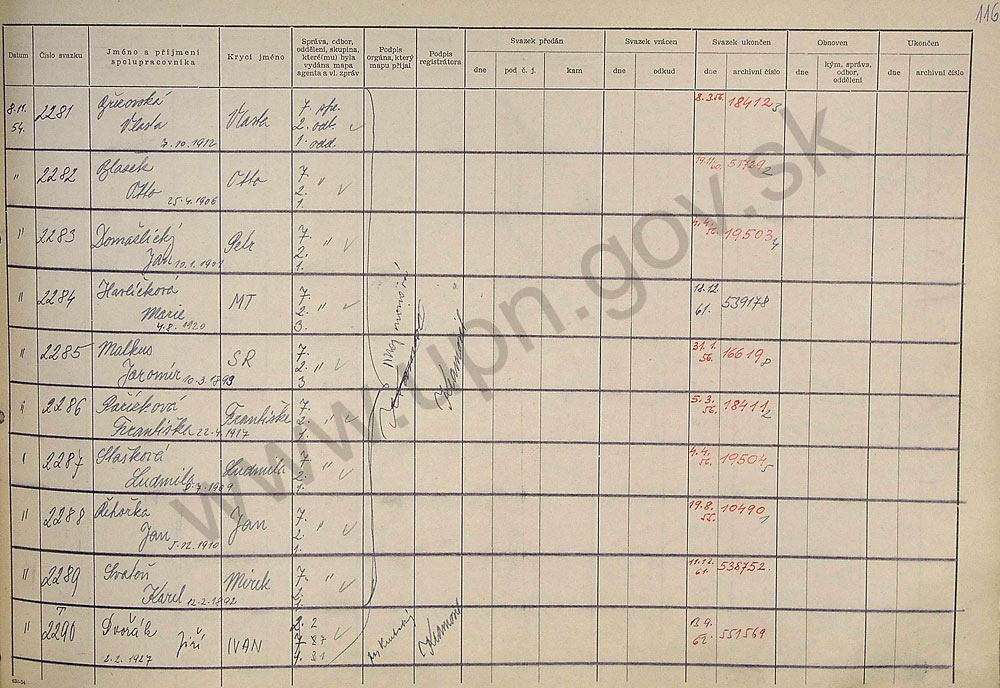 116
Datum
Číslo svazku
Jméno a příjmení
spolupracovníka
Krycí jméno
Správa, odbor,
oddělení, skupina,
které(mu) byla
vydána mapa
agenta a vl. zpráv
Podpis
orgána, který
mapu přijal
Podpis
registrátora
Svazek předán
dne
pod č. j.
kam
Svazek vrácen
dne
odkud
Svazek ukončen
dne
archivní číslo
Obnoven
dne
kým, správa,
odbor,
oddělení
Ukončen
dne
archivní číslo
8.11.
54.
2281
Vlasta
7.10.1912
Vlasta
7. spr.
2. odb.
1. odd.
8.3.56.
18412 3
" 2282
Blasek
Otto 25.4.1906
Otto
7.
2. "
1.
51739 2
" 2283
Domašlický
Jan
Petr
7.
2. "
1.
19503 4
" 2284
Havlíčková
Marie
4.8.1920
MT
7.
2. "
3.
18.12
61.
539178
" 2285
Malkus
Jaromír 10.3.1893
SR
7.
2. "
3
31.1.
56.
16619 8
" 2286
Františka
7.
2. "
1.
5.3.
56.
18411 2
2287
Stašková
Ludmila
Ludmila
7.
2. "
1.
4.4.
56.
19504 5
" 2288
Řehořka
Jan 5.12.1910
Jan
7.
2. "
1.
19.8.
55.
10490 1
" 2289
Svatoň
Karel 12.2.1892
Mirek
7. "
11.12.
61.
538752.
" 2290
Dvořák
Jiří
2.2.1927
IVAN
13.9.
62.
551569
www.upn.gov.sk